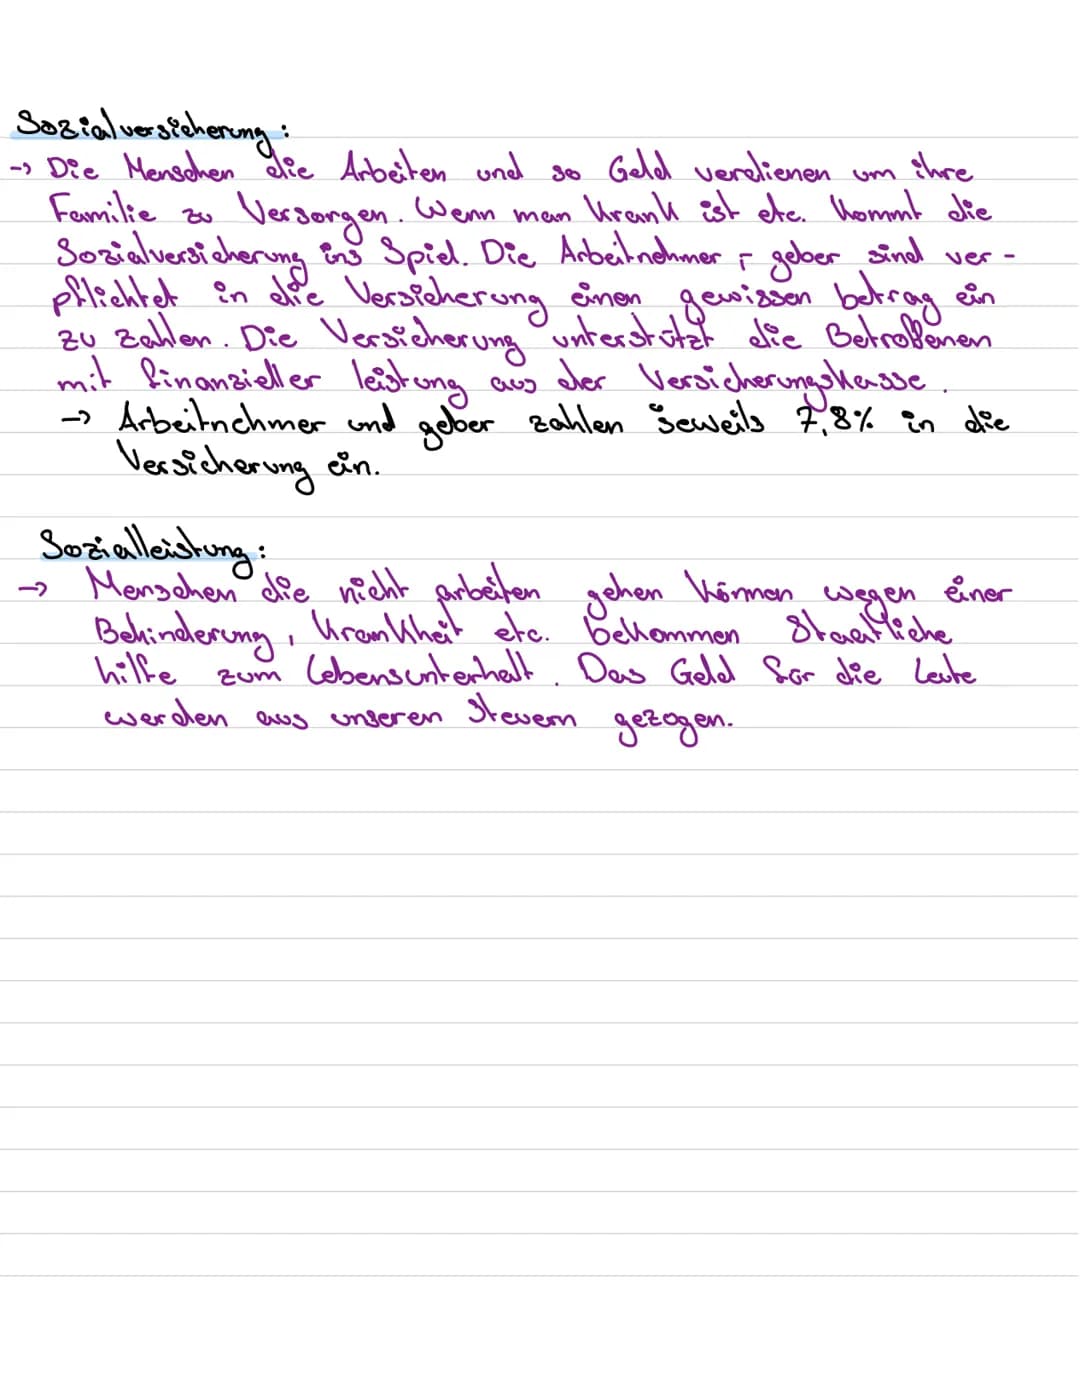 Sozialversicherung:
-> Die Menschen die Arbeiten und so Geld verdienen um ihre
Familie zu Versorgen. Wenn man krank ist etc. kommt die
Sozialversicherung ins Spiel. Die Arbeitnehmer, geber sind ver-
pflichtet in die Versicherung einen gewissen betrag ein
zu zahlen. Die Versicherung unterstützt die Betroffenen
mit finanzieller leistung aus der Versicherungskasse.
-> Arbeitnehmer und geber zahlen jeweils 7,8% in die
Versicherung ein.
Sozialleistung:
-> Menschen die nicht arbeiten gehen können wegen einer
Behinderung, krankheit etc. bekommen Staatliche
hilfe zum Lebensunterhalt. Das Geld für die Leute
werden aus unseren Steuern gezogen.